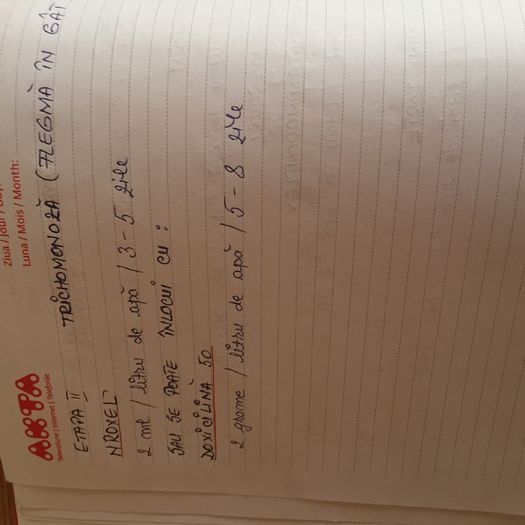 Ziua / Jour / Day:
Luna / Mois / Month:
AKTA
Televiziune | Internet | Telefonie
ETAPA II TRICHOMONOZĂ (FLEGMĂ ÎN GÂT
NROXEL
2 ml / litru de apă / 3 - 5 zile
SAU SE POATE ÎNLOCUI CU :
DOXICILINĂ 50
2 grame / litru de apă / 5 - 8 zile